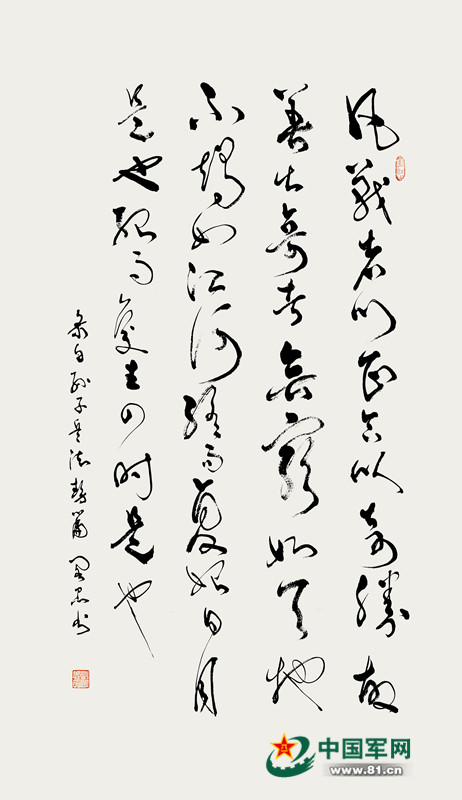 凡戰者以正合以奇勝故
善出奇者無窮如天地
不竭如江河終而复始日月
是也死而复生四时是也
录自孙子兵法势篇 书
中国军网
www.81.cn